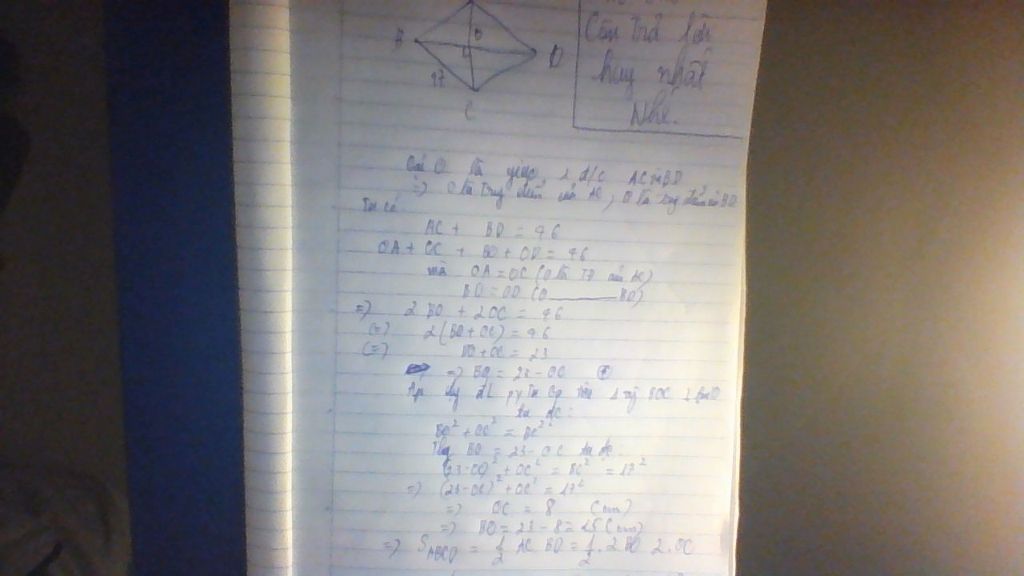 B
O
D
17
C
Câu trả lời
hay nhất
Nhé.
Gọi O là giao 2 đ/c AC và BD
=> O là trung điểm của AC, O là trung điểm của BD
Ta có:
AC + BD = 46
OA + OC + BO + OD = 46
mà OA = OC (O là TĐ của AC)
BO = OD (O ______ BD)
=> 2 BO + 2OC = 46
(=) 2(BO + OC) = 46
(=) BO + OC = 23
=> BO = 23 - OC
Áp dụng đl pytago
ta đc:
BO² + OC² = BC²
Thay BO = 23 - OC ta đc:
(23-OC)² + OC² = BC² = 17²
=> (23-OC)² + OC² = 17²
=> OC = 8 (cm)
=> BO = 23 - 8 = 15 (cm)
=> S ABCD = 1/2 AC BD = 1/2 . 2 BO 2.OC